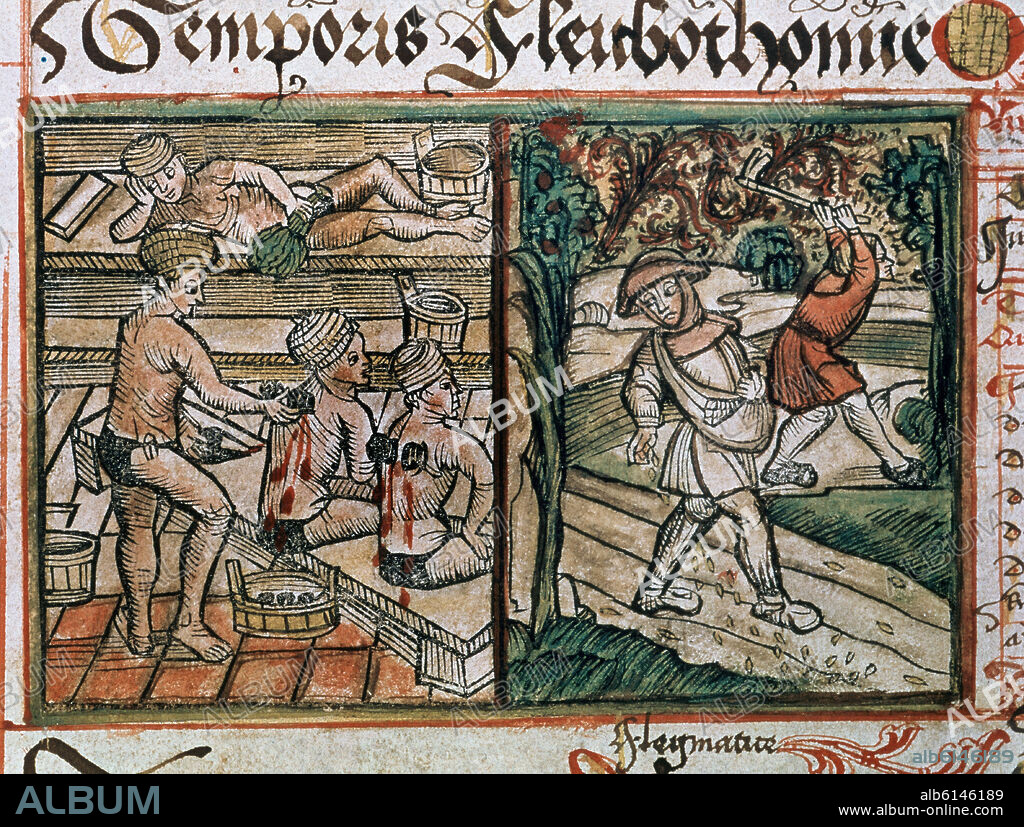 Temporis Fleubothomie
Flegmatice
alb6146189
ALBUM
alb6146189
www.album-online.com